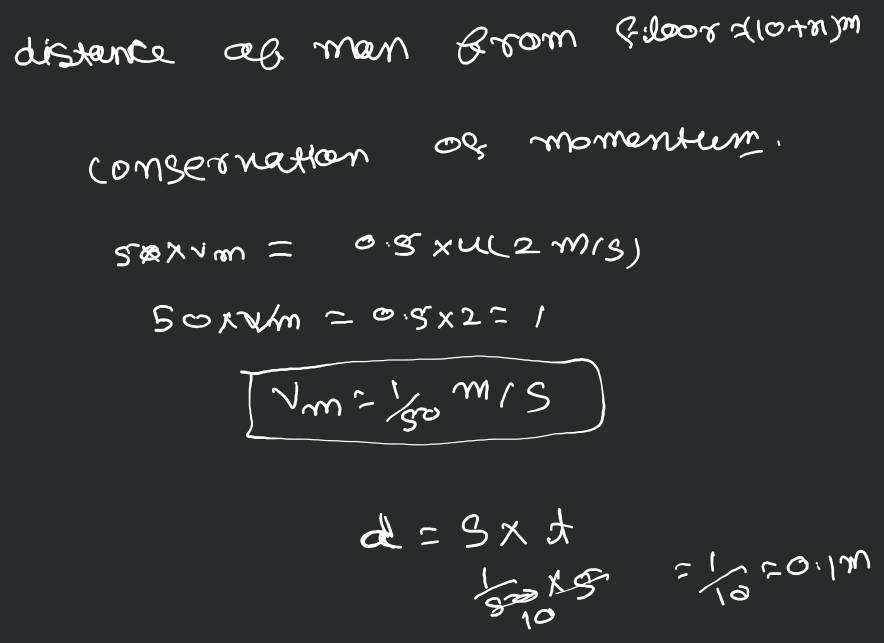 distance of man from floor = (10+x)m
conservation of momentum.
50 x vm = 0.5 x u(2 m/s)
50 x vm = 0.5 x 2 = 1
Vm = 1/50 m/s
d = S x t
1/50 x 5 = 1/10 = 0.1m
10